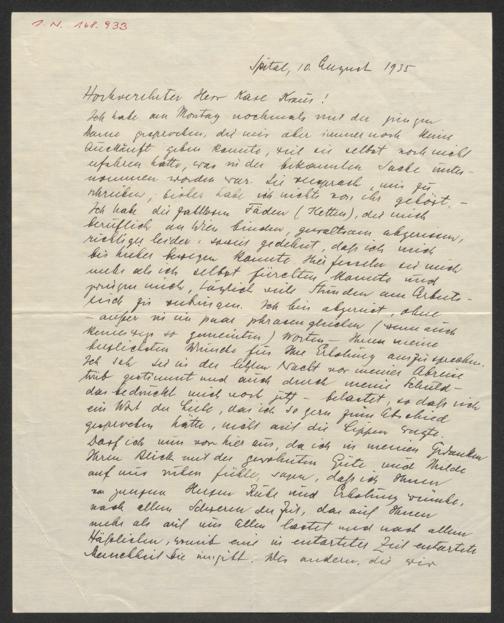 I. N. 168.933
Spital, 10. August 1935
Hochverehrter Herr Karl Kraus!
Ich habe am Montag nochmals mit der jungen
Dame gesprochen, die mir aber immer noch keine
Auskunft geben konnte, weil sie selbst noch nicht
erfahren hatte, was in der bekannten Sache unter-
nommen worden war. Sie versprach, mir zu
schreiben; bisher habe ich nichts von ihr gehört. –
Ich habe die zahllosen Fäden (Ketten), die mich
beruflich an Wien binden, gewaltsam abgerissen,
richtiger leider: soweit gedehnt, daß ich mich
bis hieher bewegen konnte. Hier fesseln sie mich
mehr als ich selbst fürchten konnte und
zwingen mich, täglich viele Stunden am Arbeits-
tisch zu verbringen. Ich bin abgereist, ohne
– außer in ein paar phrasengleichen (wenn auch
keineswegs so gemeinten) Worten – Ihnen meine
herzlichsten Wünsche für Ihre Erholung auszusprechen.
Ich sah Sie in der letzten Nacht vor meiner Abreise
trüb gestimmt und auch durch meine Schuld –
das bedrückt mich noch jetzt – belastet, so daß ich
ein Wort der Liebe, das ich so gern zum Abschied
gesprochen hätte, nicht auf die Lippen wagte.
Darf ich nun von hier aus, da ich in meinen Gedanken
Ihren Blick mit der gewohnten Güte und Milde
auf mir ruhen fühle, sagen, daß ich Ihnen
von ganzem Herzen Ruhe und Erholung wünsche,
nach allem Schweren der Zeit, das auf Ihnen
mehr als auf uns allen lastet und nach allem
Häßlichen, womit eine in entarteter Zeit entartete
Menschheit Sie umgibt. Uns andern, die wir